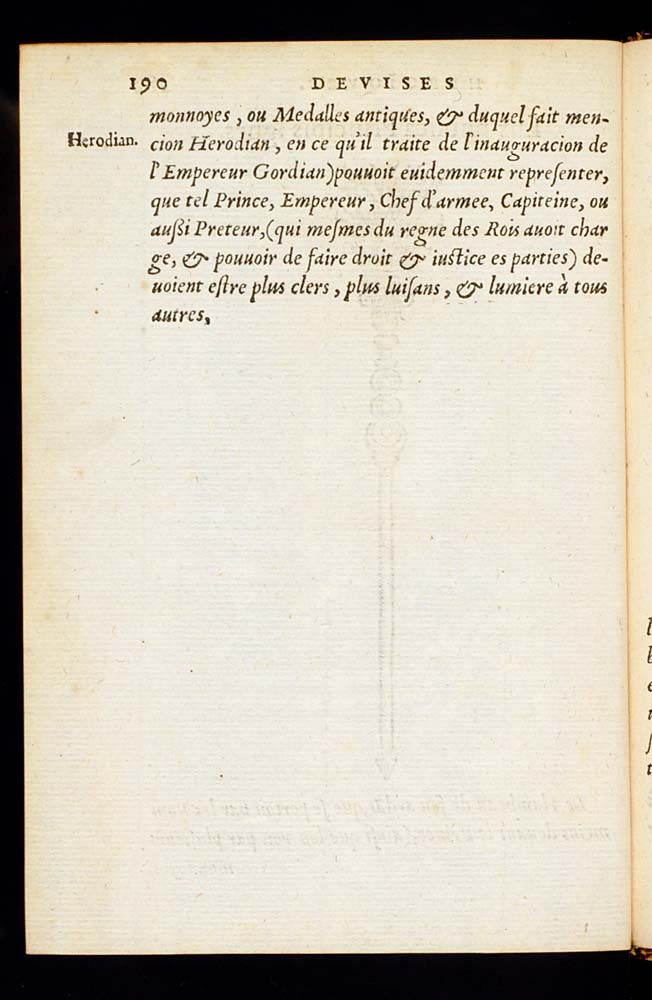 190 DEVISES
monnoyes, ou Medalles antiques, & duquel fait men-
Herodian. cion Herodian, en ce qu'il traite de l'inauguracion de
l'Empereur Gordian)pouuoit euidemment repreſenter,
que tel Prince, Empereur, Chef d'armee, Capiteine, ou
außi Preteur,(qui meſmes du regne des Rois auoit char
ge, & pouuoir de faire droit & iuſtice es parties) de-
uoient eſtre plus clers, plus luiſans, & lumiere à tous
autres,